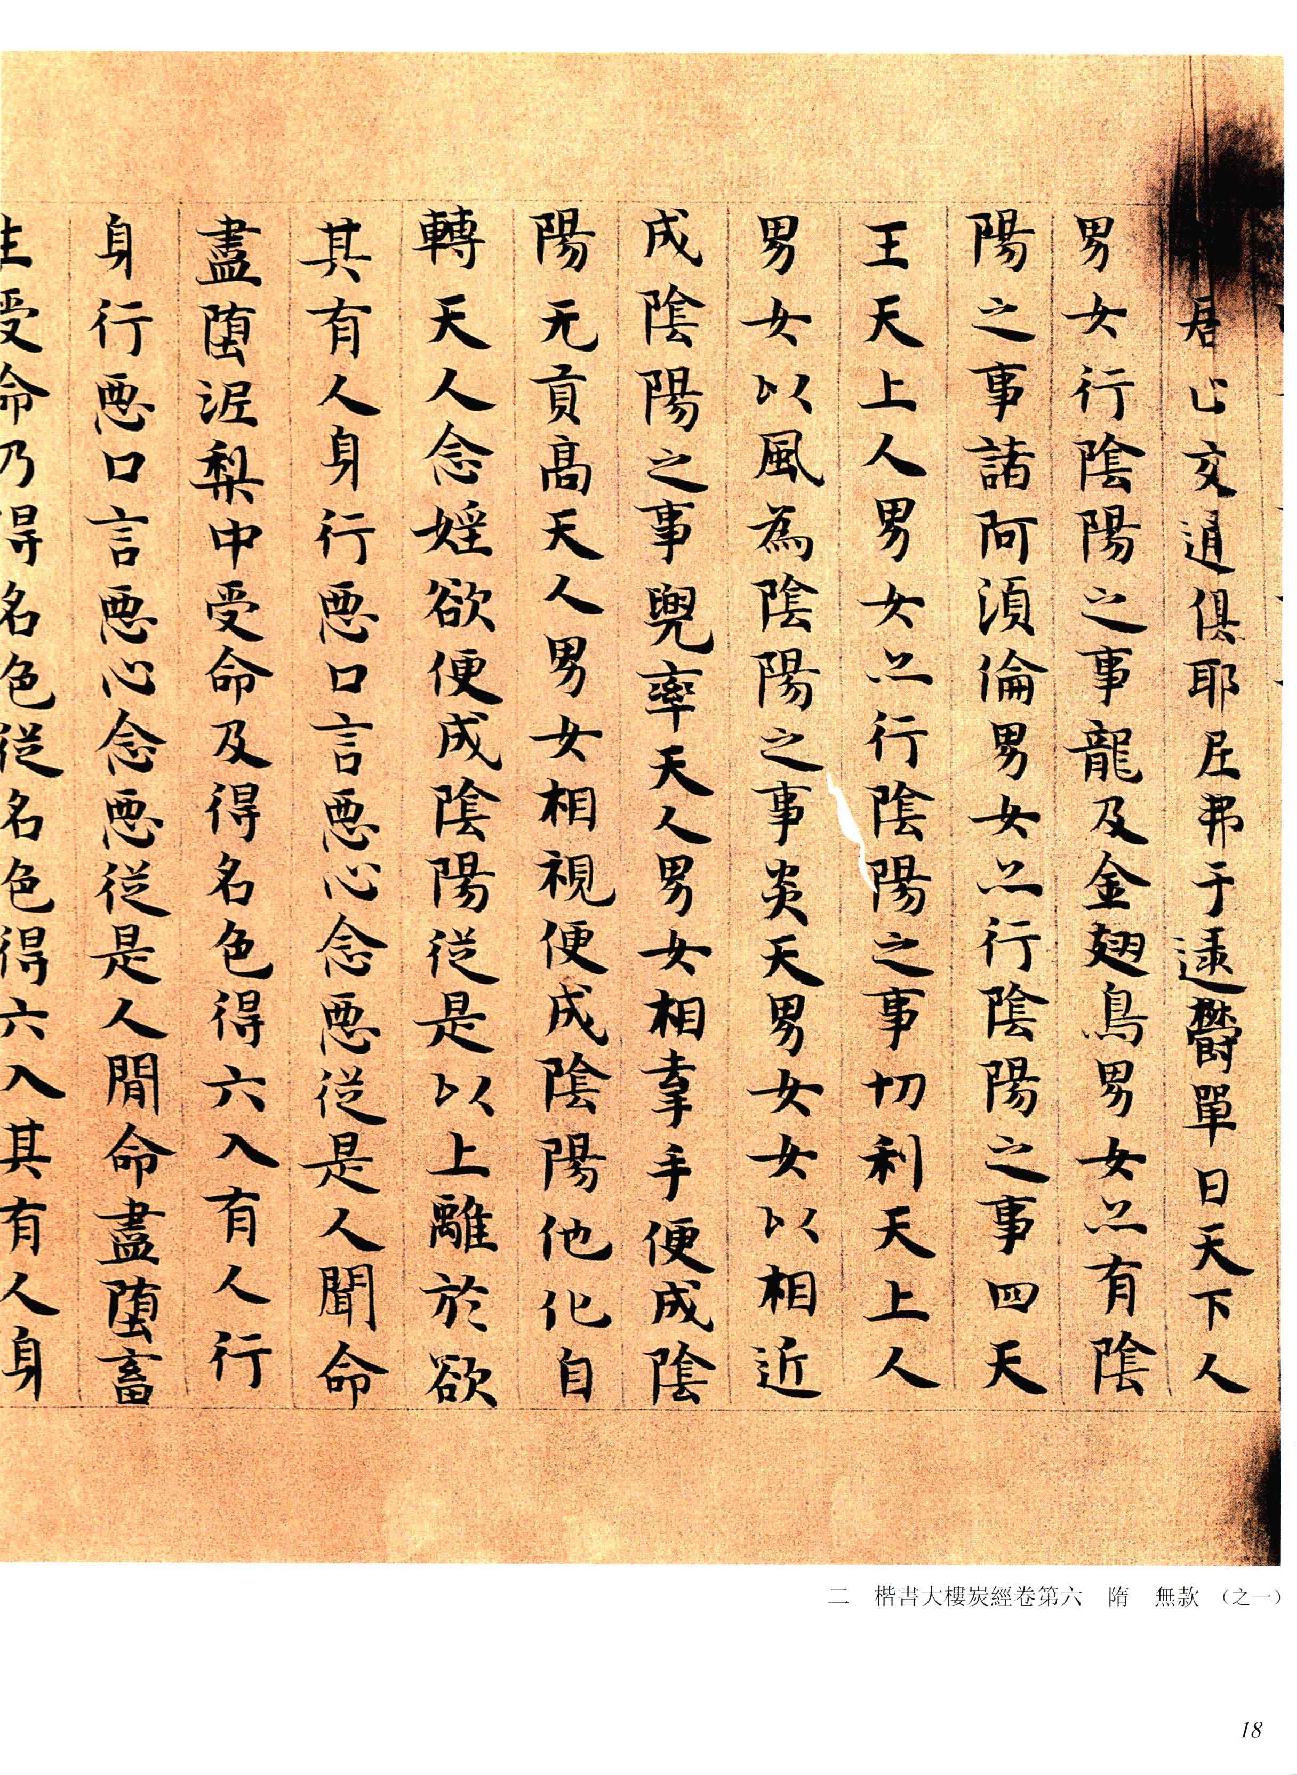 君止交通俱耶尼弗于逮鬱單曰天下人
男女行陰陽之事龍及金翅鳥男女亦有陰
陽之事諸阿須倫男女亦行陰陽之事四天
王天上人男女亦行陰陽之事切利天上人
男女以風為陰陽之事炎天男女女以相近
成陰陽之事兜率天人男女相牽手便成陰
陽无貢高天人男女相視便成陰陽他化自
轉天人念婬欲便成陰陽從是以上離於欲
其有人身行惡口言惡心念惡從是人聞命
盡墮泥犁中受命及得名色得六入有人行
身行惡口言惡心念惡從是人間命盡墮畜
生受命乃得名色從名色得六入其有人身
二 楷書大樓炭經卷第六 隋 無款 （之一）
18